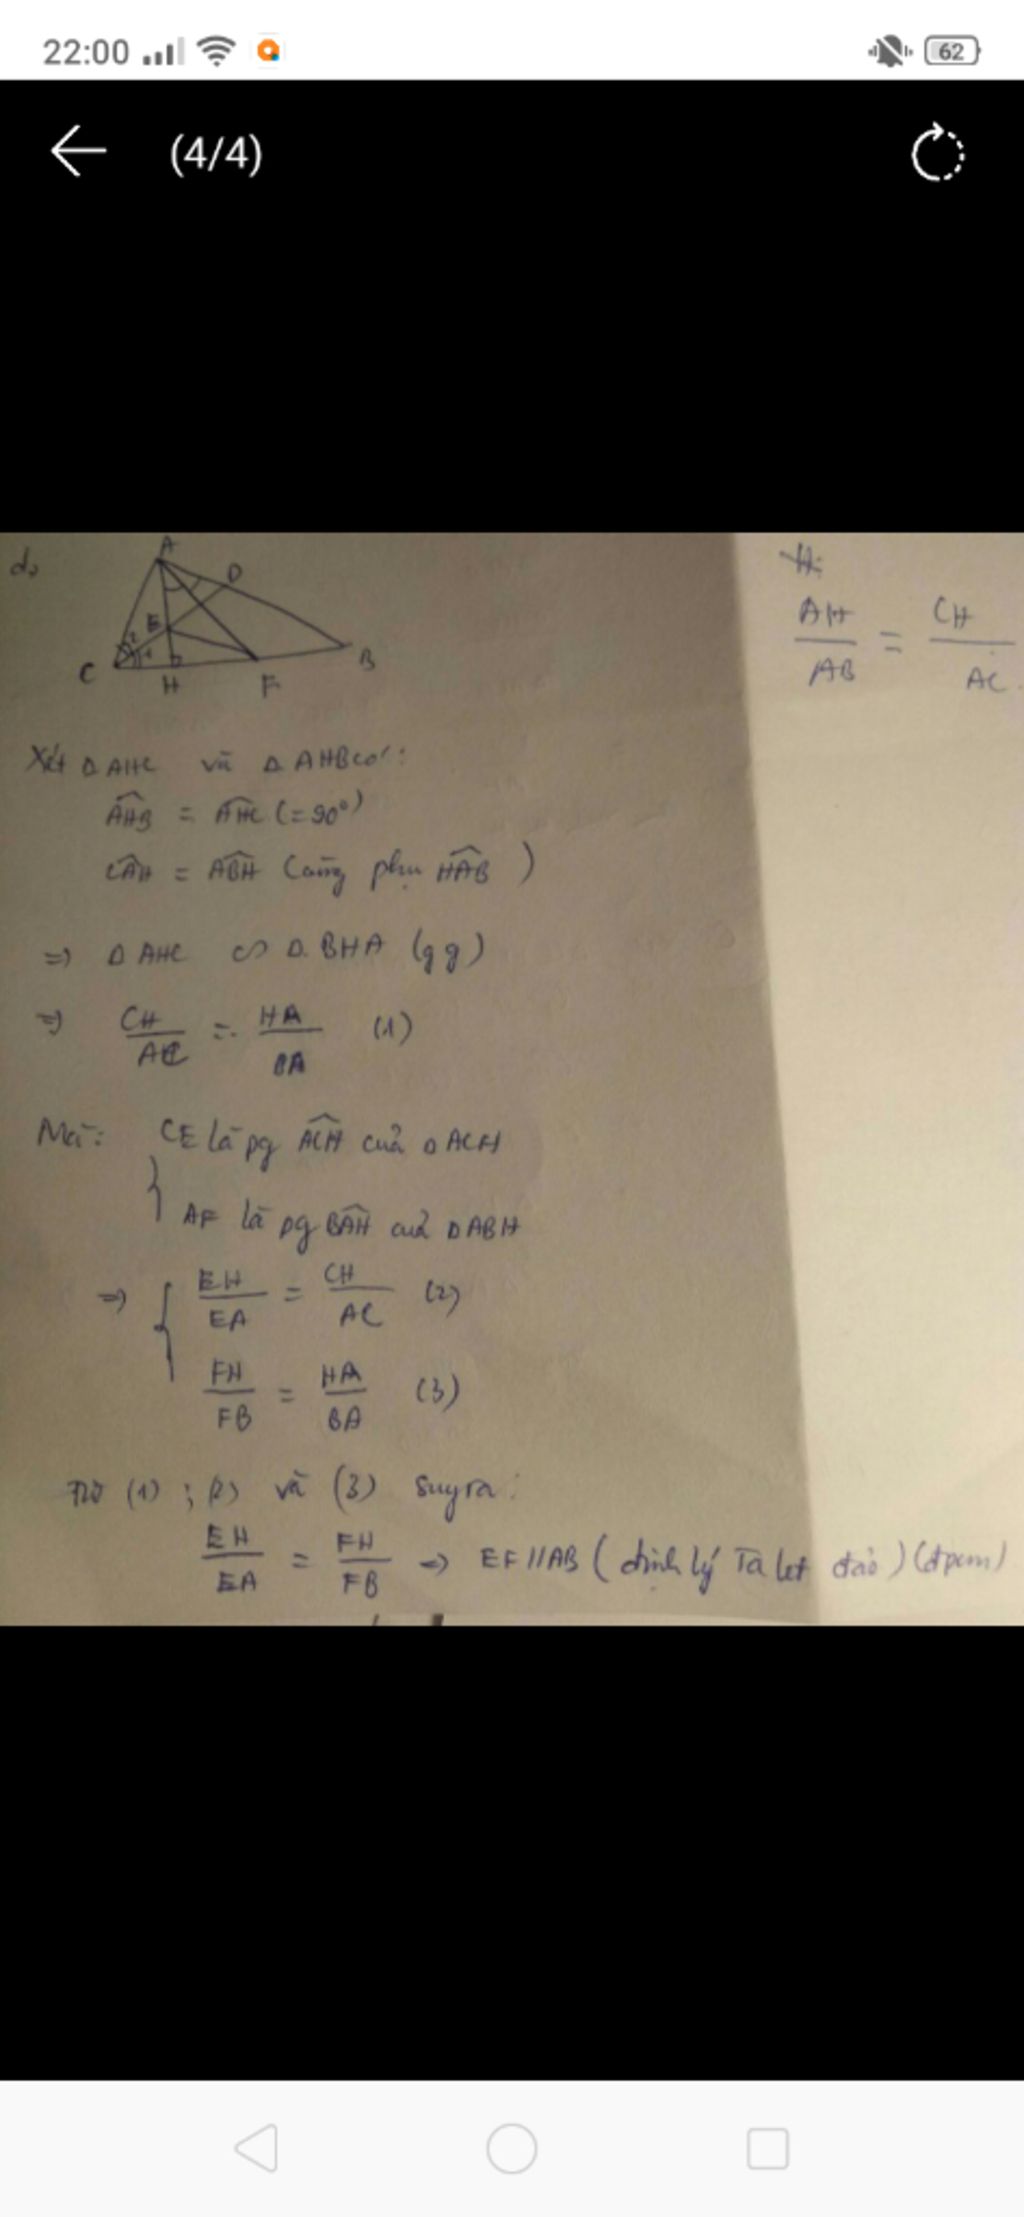 22:00
62
(4/4)
d,
A
D
E
2
1
C
H
F
B
H:
AH
CH
=
AB
AC
Xét Δ AHC và Δ AHB có:
AHB = AHC (= 90°)
CAH = ABH (cùng phụ HAB)
=> Δ AHC ∽ Δ BHA (gg)
=> CH/AC = HA/BA (1)
Mà: CE là pg ACH của Δ ACH
AF là pg BAH của Δ ABH
=> { EH/EA = CH/AC (2)
FH/FB = HA/BA (3)
Từ (1); (2) và (3) suy ra:
EH/EA = FH/FB => EF // AB (định lý Ta let đảo) (đpcm)